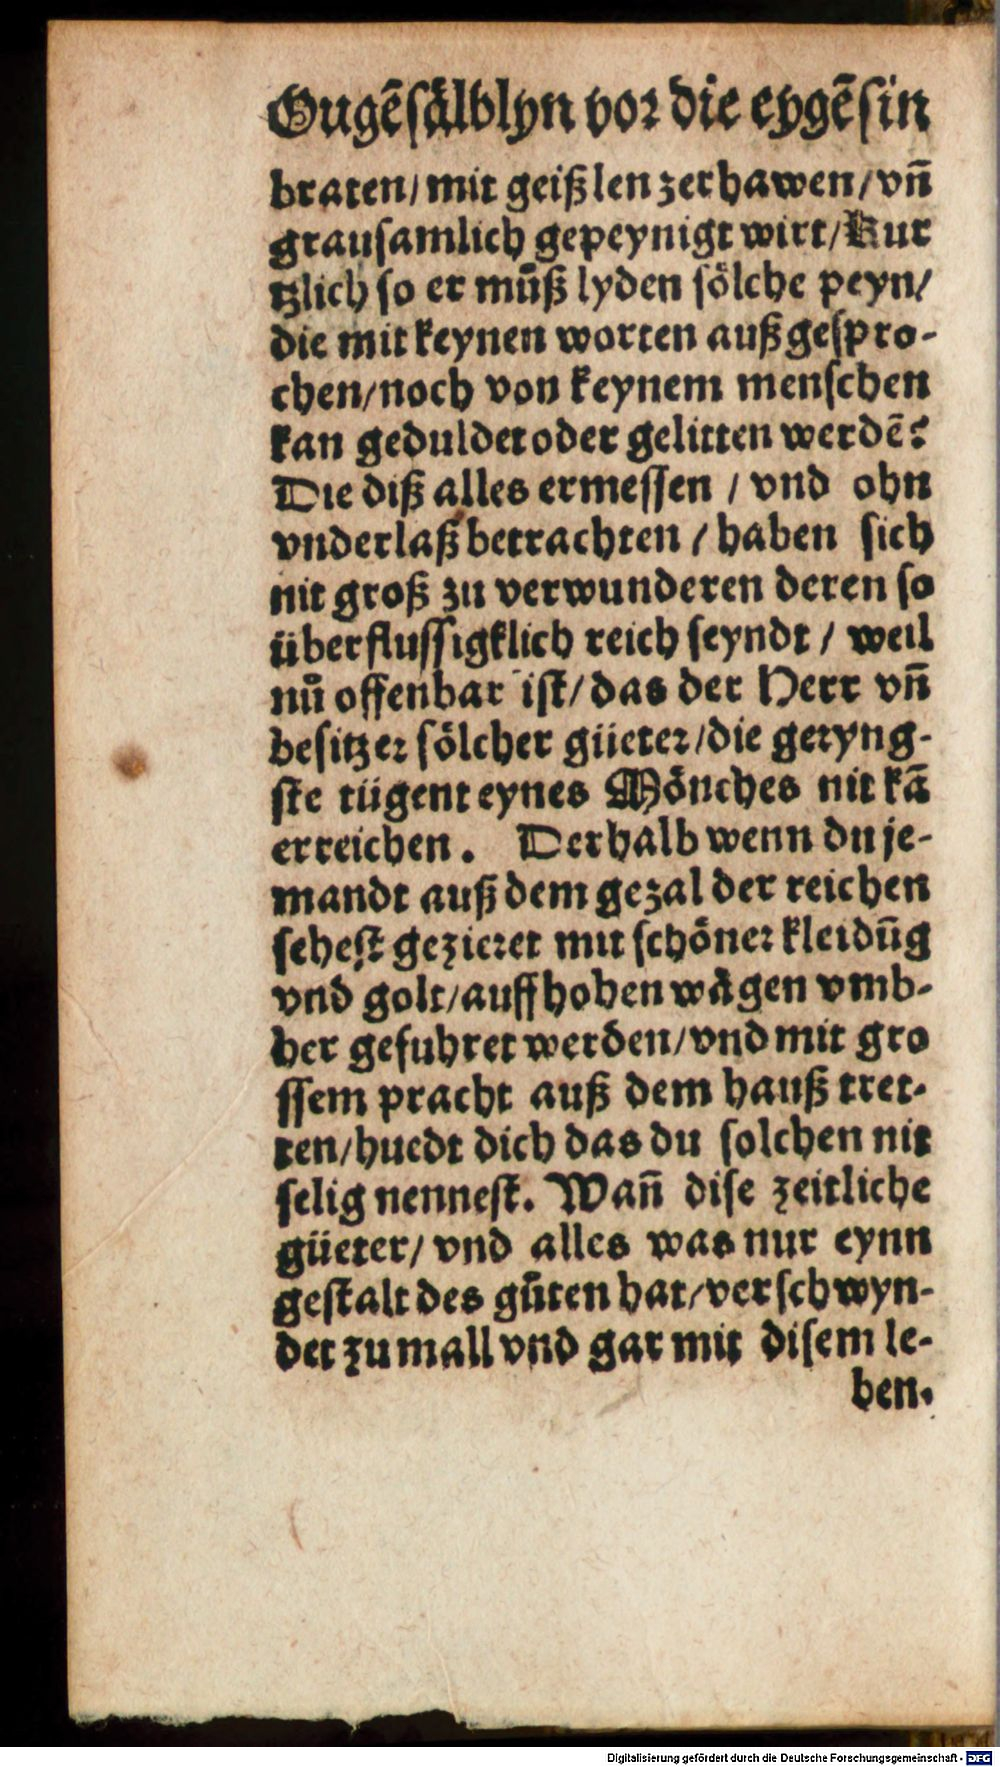 Ougẽsälblyn vor die eygẽsin
braten/ mit geißlen zerhawen/ vñ
grausamlich gepeynigt wirt/ Kur
tzlich so er můß lyden sölche peyn/
die mit keynen worten außgespro-
chen/ noch von keynem menschen
kan geduldet oder gelitten werdẽ?
Die diß alles ermessen / vnd ohn
vnderlaß betrachten / haben sich
nit groß zu verwunderen deren so
überflussigklich reich seyndt / weil
nů offenbar ist/ das der Herr vñ
besitzer sölcher güeter/ die geryng-
ste tügent eynes Mönches nit kã
erreichen. Derhalb wenn du je-
mandt auß dem gezal der reichen
sehest gezieret mit schöner kleidũg
vnd golt/ auff hohen wägen vmb-
her gefuhret werden/ vnd mit gro
ssem pracht auß dem hauß tret-
ten/ huedt dich das du solchen nit
selig nennest. Wañ dise zeitliche
güeter/ vnd alles was nur eynn
gestalt des gůten hat/ verschwyn-
det zu mall vnd gar mit disem le-
ben.
Digitalisierung gefördert durch die Deutsche Forschungsgemeinschaft - DFG